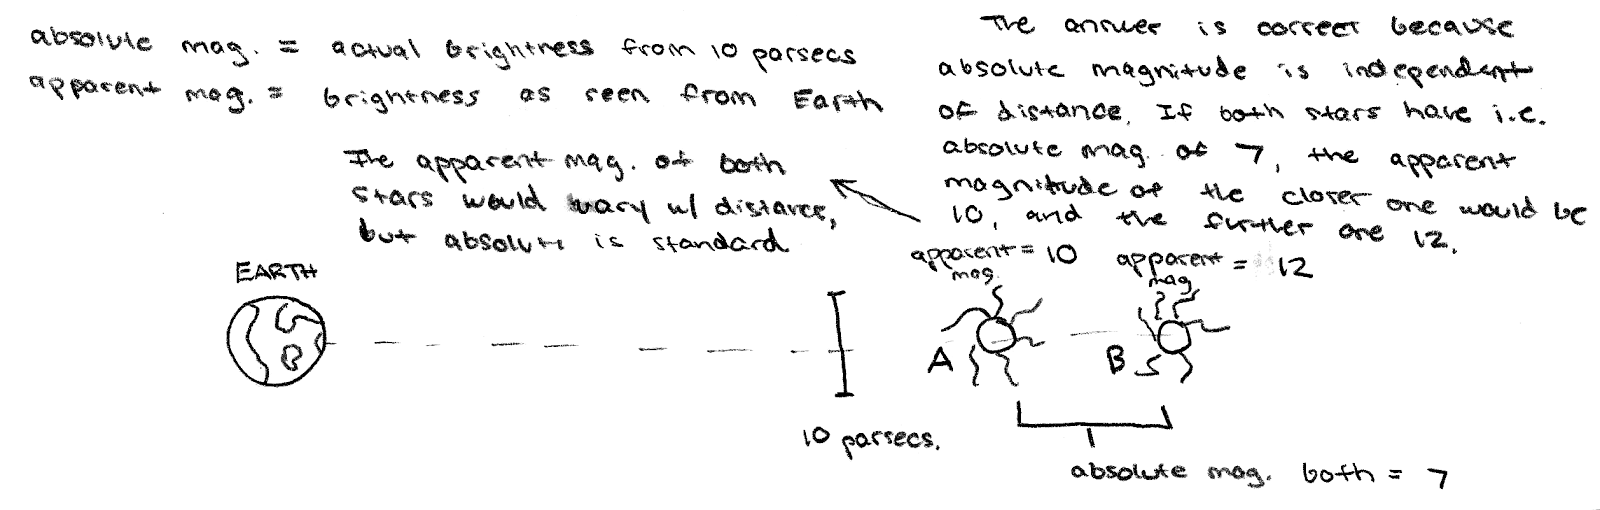 absolute mag. = actual brightness from 10 parsecs
apparent mag. = brightness as seen from Earth
The apparent mag. of both
stars would vary w/ distance,
but absolute is standard
The answer is correct because
absolute magnitude is independent
of distance. If both stars have i.e.
absolute mag of 7, the apparent
magnitude of the closer one would be
10, and the further one 12.
EARTH
apparent = 10
mag.
apparent = 12
mag
A
B
10 parsecs.
absolute mag. both = 7